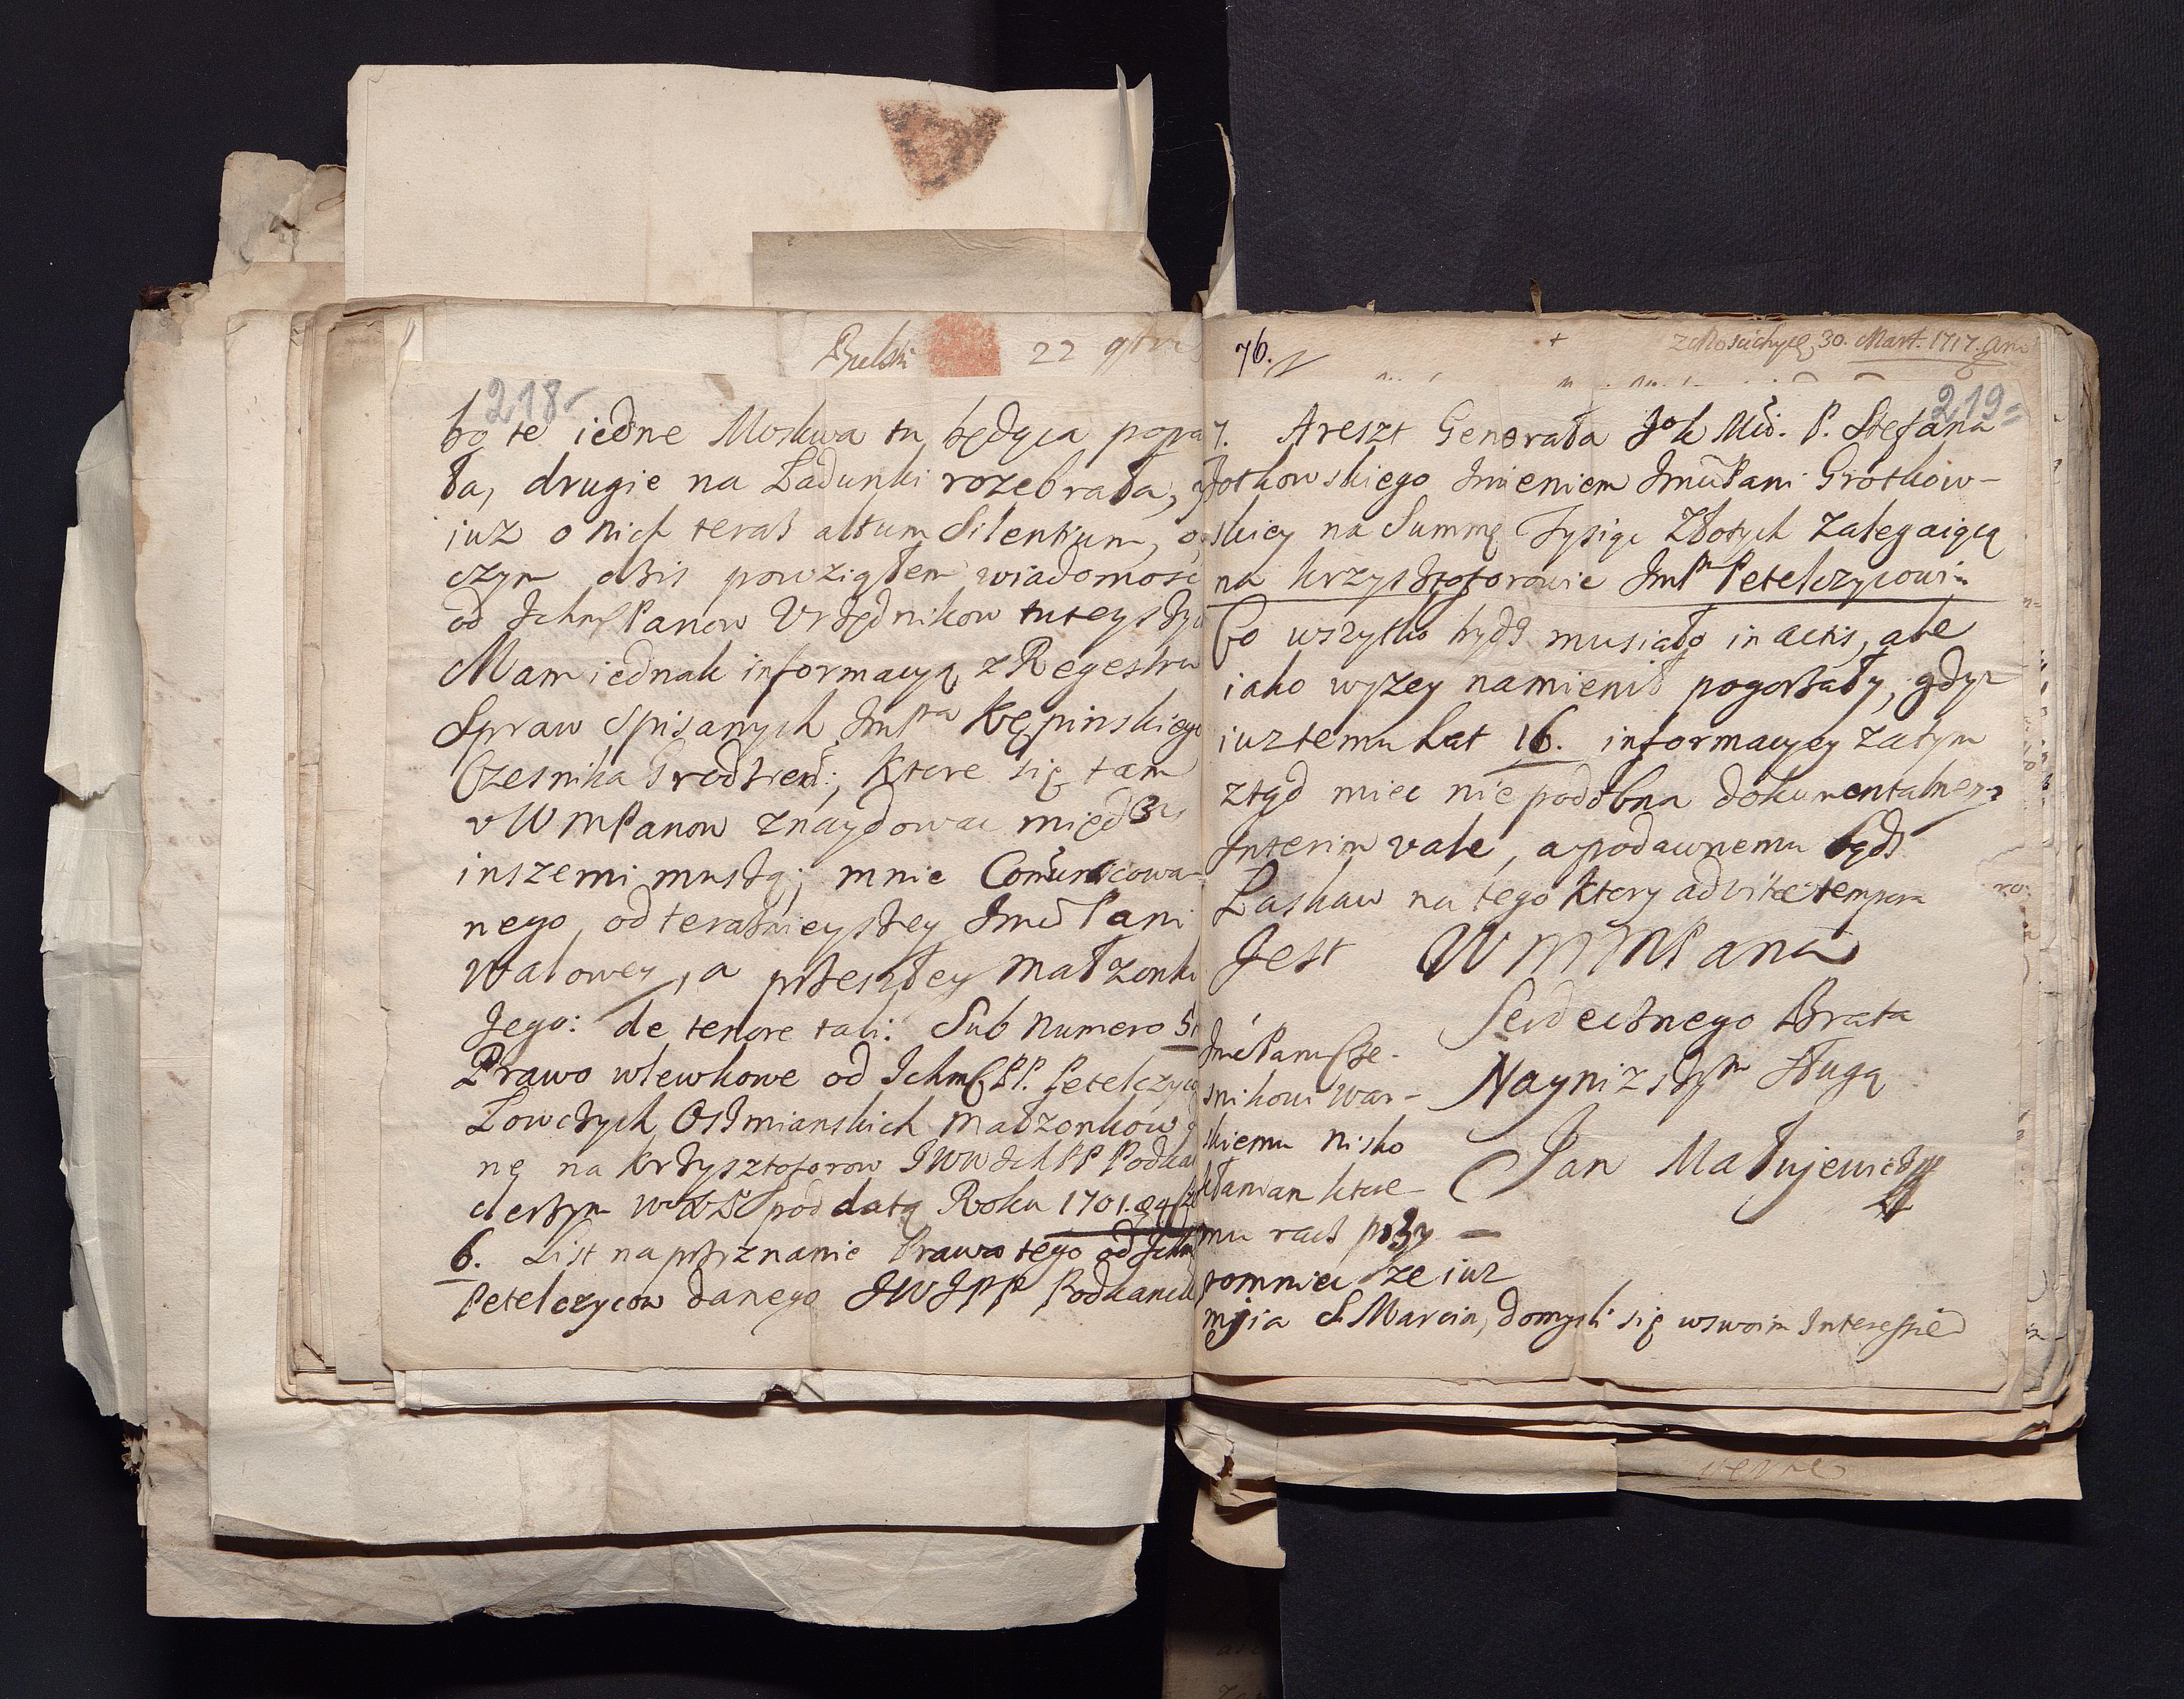 22
218
bo te iedne Moskwa tu będąca popa
ła, drugie na Ładunki rozebrała,
iuz o nich teraz altum Silentium, o
czym dzis powziąłem wiadomosc
od Ichm Panow Urzędnikow tuteyszy
Mam iednak informacyą z Regestru
Spraw Spisanych Imsca Kępinskiego
Czesnika Grodzień: Ktore się tam
v WMPanow znaydowac między
inszemi muszą; mnie Comunicowa-
nego, od teraznieyszey Imć Pani
Walowey, a przeszłey Małzonki
Jego: de tenore tali: Sub Numero 5
Prawo wlewkowe od Ichm PP. Petelczyco
Łowczych Oszmianskich Małzonkow
ne na Krzysztoforow JWW IchPP Podkan
clerzym WXL pod datą Roku 1701.
6. List na przyznanie Prawa tego od Ichm
Petelczycow danego JWJPP Podkancl
76.
30. Mart. 1717.
219
7. Areszt Generała Jeh Mći. P. Stefana
otkowskiego Imieniem Imć Pani Grotkow-
skiey na Summę Tysiąc Złotych zalegaiącą
na Krzysztoforowie ImP Petelczycowi
Co wszytko bydz musiało in actis, ale
iako wyzey namienił pogorzały, gdyz
iuz temu Lat 16. informacyey zatym
ztąd miec nie podobna dokumentalney
Interim vale, a podawnemu bądz
Łaskaw na tego Ktory ad vitae tempora
Jest WMMPana
Serdecznego Brata
Nayniższym Sługą
Jan Matujewicz
Imć Panu Cze-
snikowi War-
skiemu nisko
kłaniam ktore-
mu racz przy
pomniec ze iuz
mija S. Marcin, domysli się w swoim Interessie